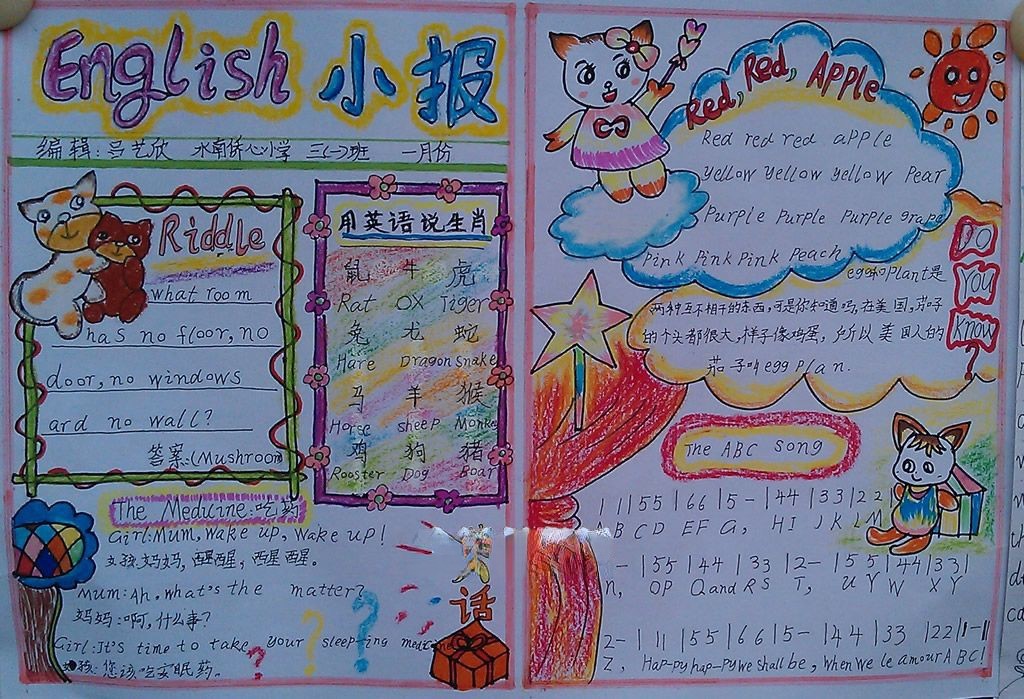 English 小报
编辑:吕艺欣 水南侨心小学 三(一)班 一月份
Riddle
what room
has no floor, no
door, no windows
ard no wall?
答案:(Mushroom
用英语说生肖
鼠 牛 虎
Rat OX Tiger
兔 龙 蛇
Hare Dragon snake
马 羊 猴
Horse sheep Monkey
鸡 狗 猪
Rooster Dog Boar
The Medicine:吃药
Girl:Mum, wake up, wake up!
女孩:妈妈, 醒醒, 醒醒.
Mum:Ah, what's the matter?
妈妈:啊, 什么事?
Girl:It's time to take your sleep-ing medicine
女孩:您该吃安眠药。
话
Red, Red, APPLE
Red red red apple
Yellow Yellow yellow Pear
Purple Purple Purple grape
Pink Pink Pink Peach
DO
YOU
Know
?
egg和Plant是
两种互不相干的东西,可是你知道吗,在美国,茄子
的个头都很大,样子像鸡蛋, 所以美国人的
茄子叫egg plan.
The ABC song
1 1|55|66|5-|44|33|22
A B C D E F G, H I J K L M
|55|44|33|2-|55|44|33|
n, OP Q and R S T, U V W X Y
2-|11|55|66|5-|44|33|22|1-||
Z, Hap-py hap-py we shall be, When we le amour A B C!